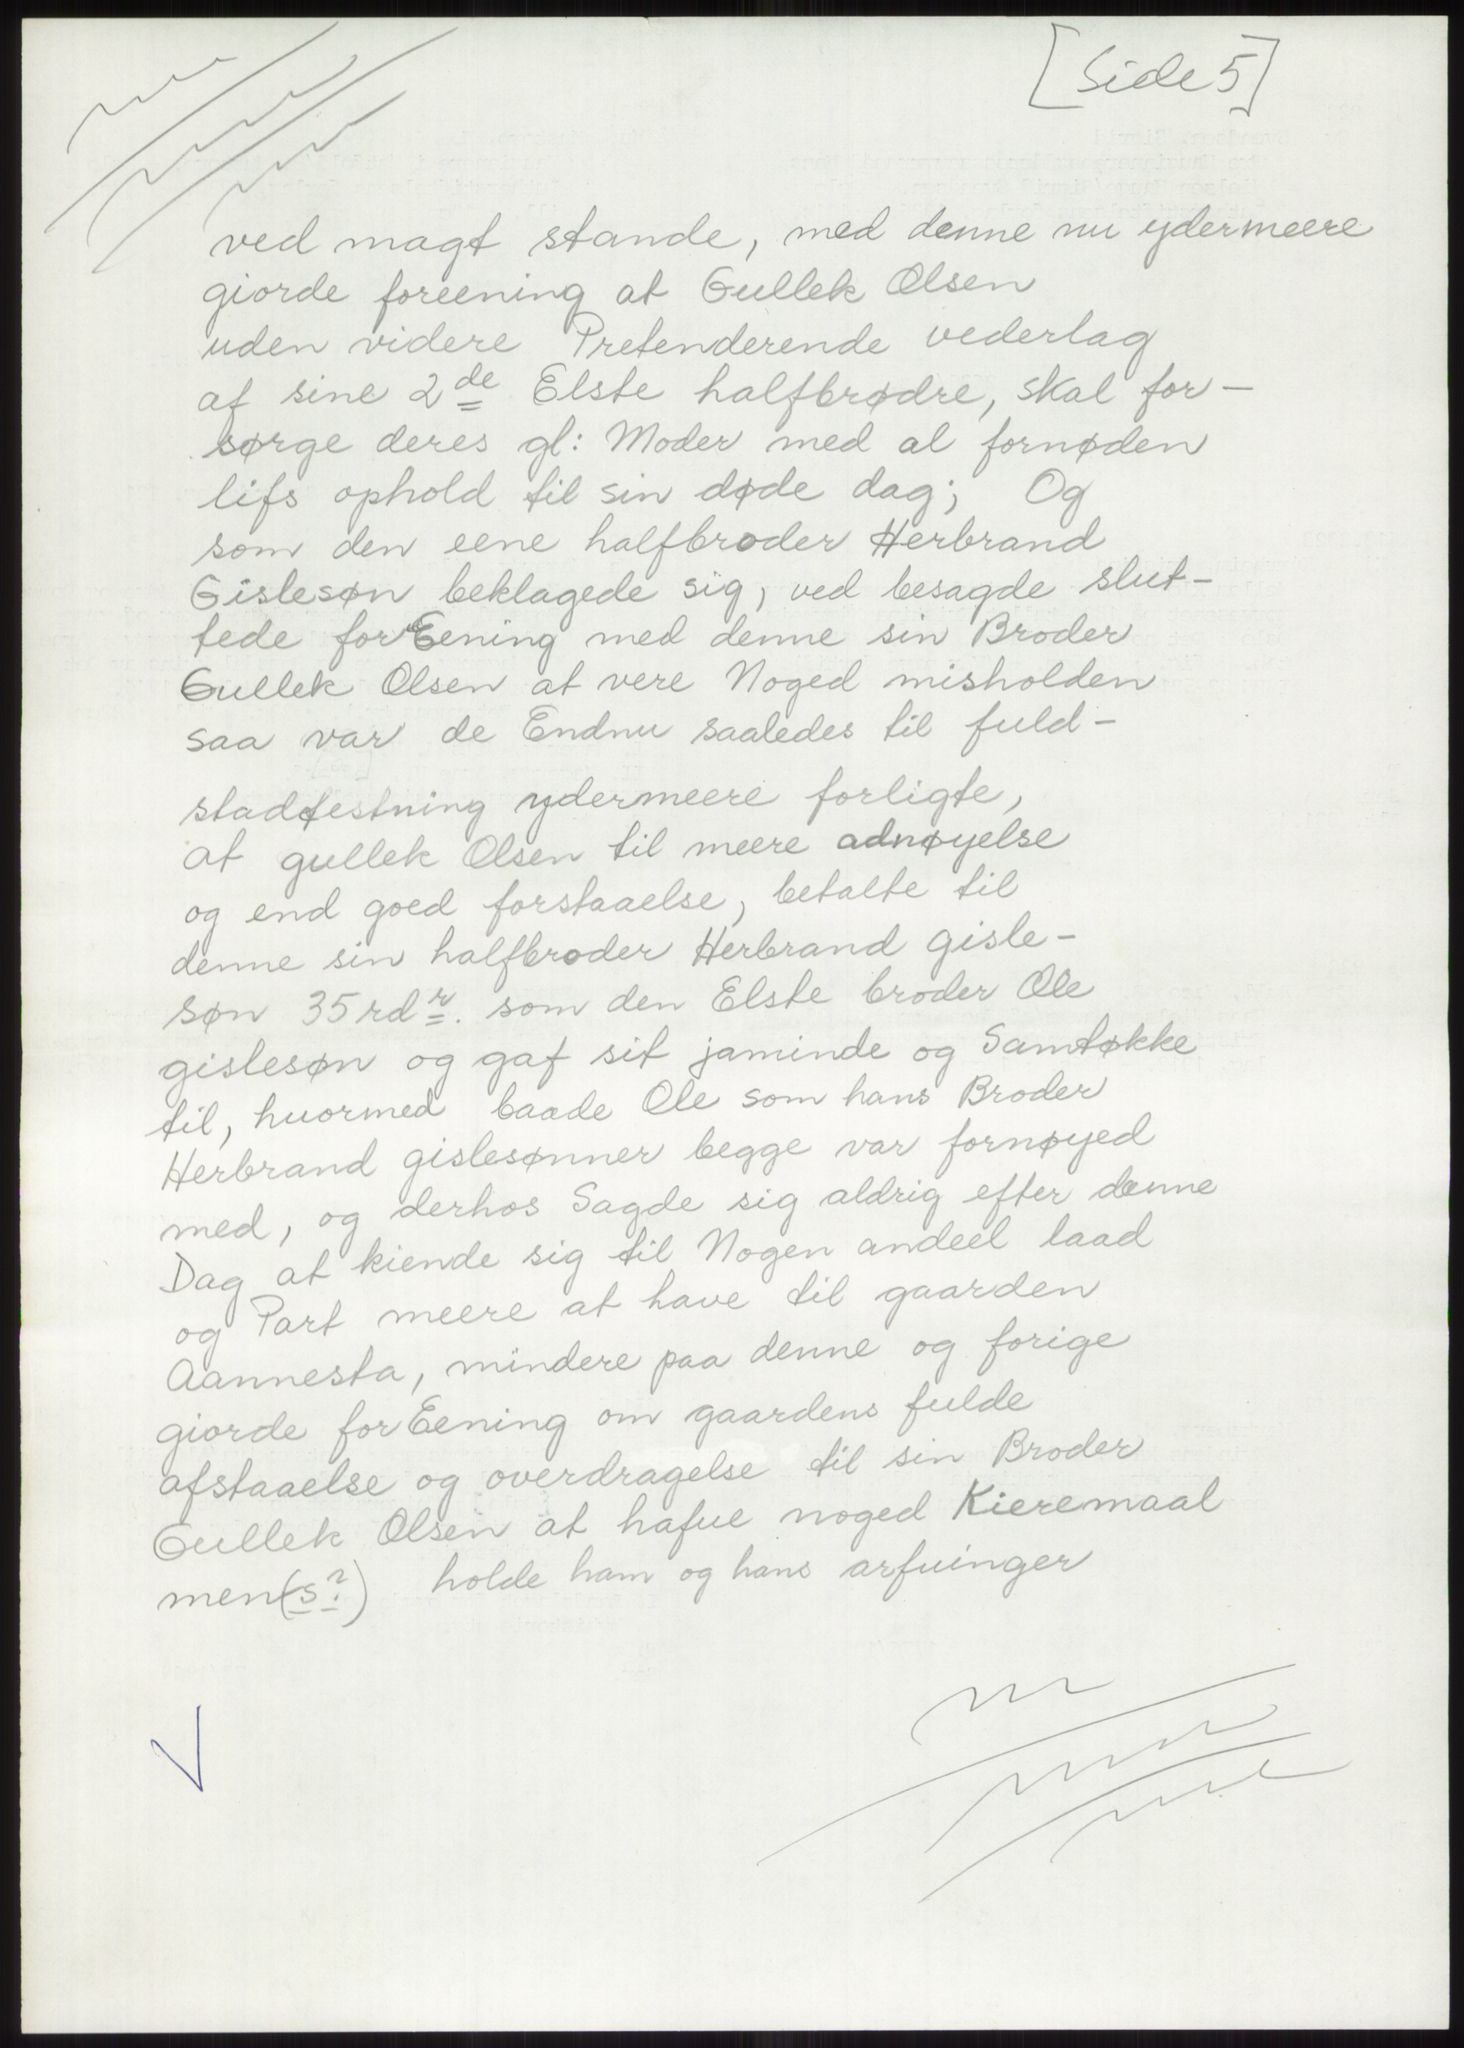 [Side 5]
ved magt stande, med denne nu ydermeere
giorde foreening at Gullek Olsen
uden videre Pretenderende vederlag
af sine 2de Elste halfbrødre, skal for-
sørge deres gl: Moder med al fornøden
lifs ophold til sin døde dag; Og
som den eene halfbroder Herbrand
Gislesøn beklagede sig, ved besagde slut-
tede forEening med denne sin Broder
Gullek Olsen at vere Noged misholden
saa var de Endnu saaledes til fuld-
stadfestning ydermeere forligte,
at gullek Olsen til meere adnøyelse
og end goed forstaaelse, betalte til
denne sin halfbroder Herbrand gisle-
søn 35 rdr. som den Elste broder Ole
gislesøn og gaf sit jaminde og Samtøkke
til, huormed baade Ole som hans Broder
Herbrand gislesønner begge var fornøyed
med, og derhos Sagde sig aldrig efter denne
Dag at kiende sig til Nogen andeel laad
og Part meere at have til gaarden
Aannesta, mindere paa denne og forige
giorde forEening om gaardens fulde
afstaaelse og overdragelse til sin Broder
Gullek Olsen at hafue noged Kieremaal
men(s?) holde ham og hans arfuinger